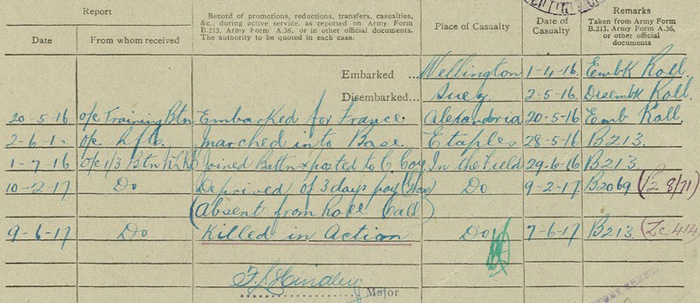 Report
Record of promotions, reductions, transfers, casualties,
&c., during active service, as reported on Army Form
B.213, Army Form A.36, or in other official documents.
The authority to be quoted in each case.
Place of Casualty
Date of
Casualty
Remarks
Taken from Army Form
B.213, Army Form A.36,
or other official
documents
Date From whom received
Embarked ... Wellington 1-4-16 Embk Roll.
Disembarked... Suez 2-5-16 Disembk Roll.
20-5-16 o/c Training Btn Embarked for France. Alexandria 20-5-16 Emb Roll.
2-6-1 o/c marched into Base. Etaples 28-5-16 B213.
1-7-16 o/c 1/3 Btn Joined Battn & posted to C Coy In the Field 29-6-16 B213
10-2-17 Do Deprived of 3 days pay Do 9-2-17 B2069 (Z 8/71)
(Absent from Roll Call)
9-6-17 Do Killed in Action Do 7-6-17 B213 (Zc 414
Major